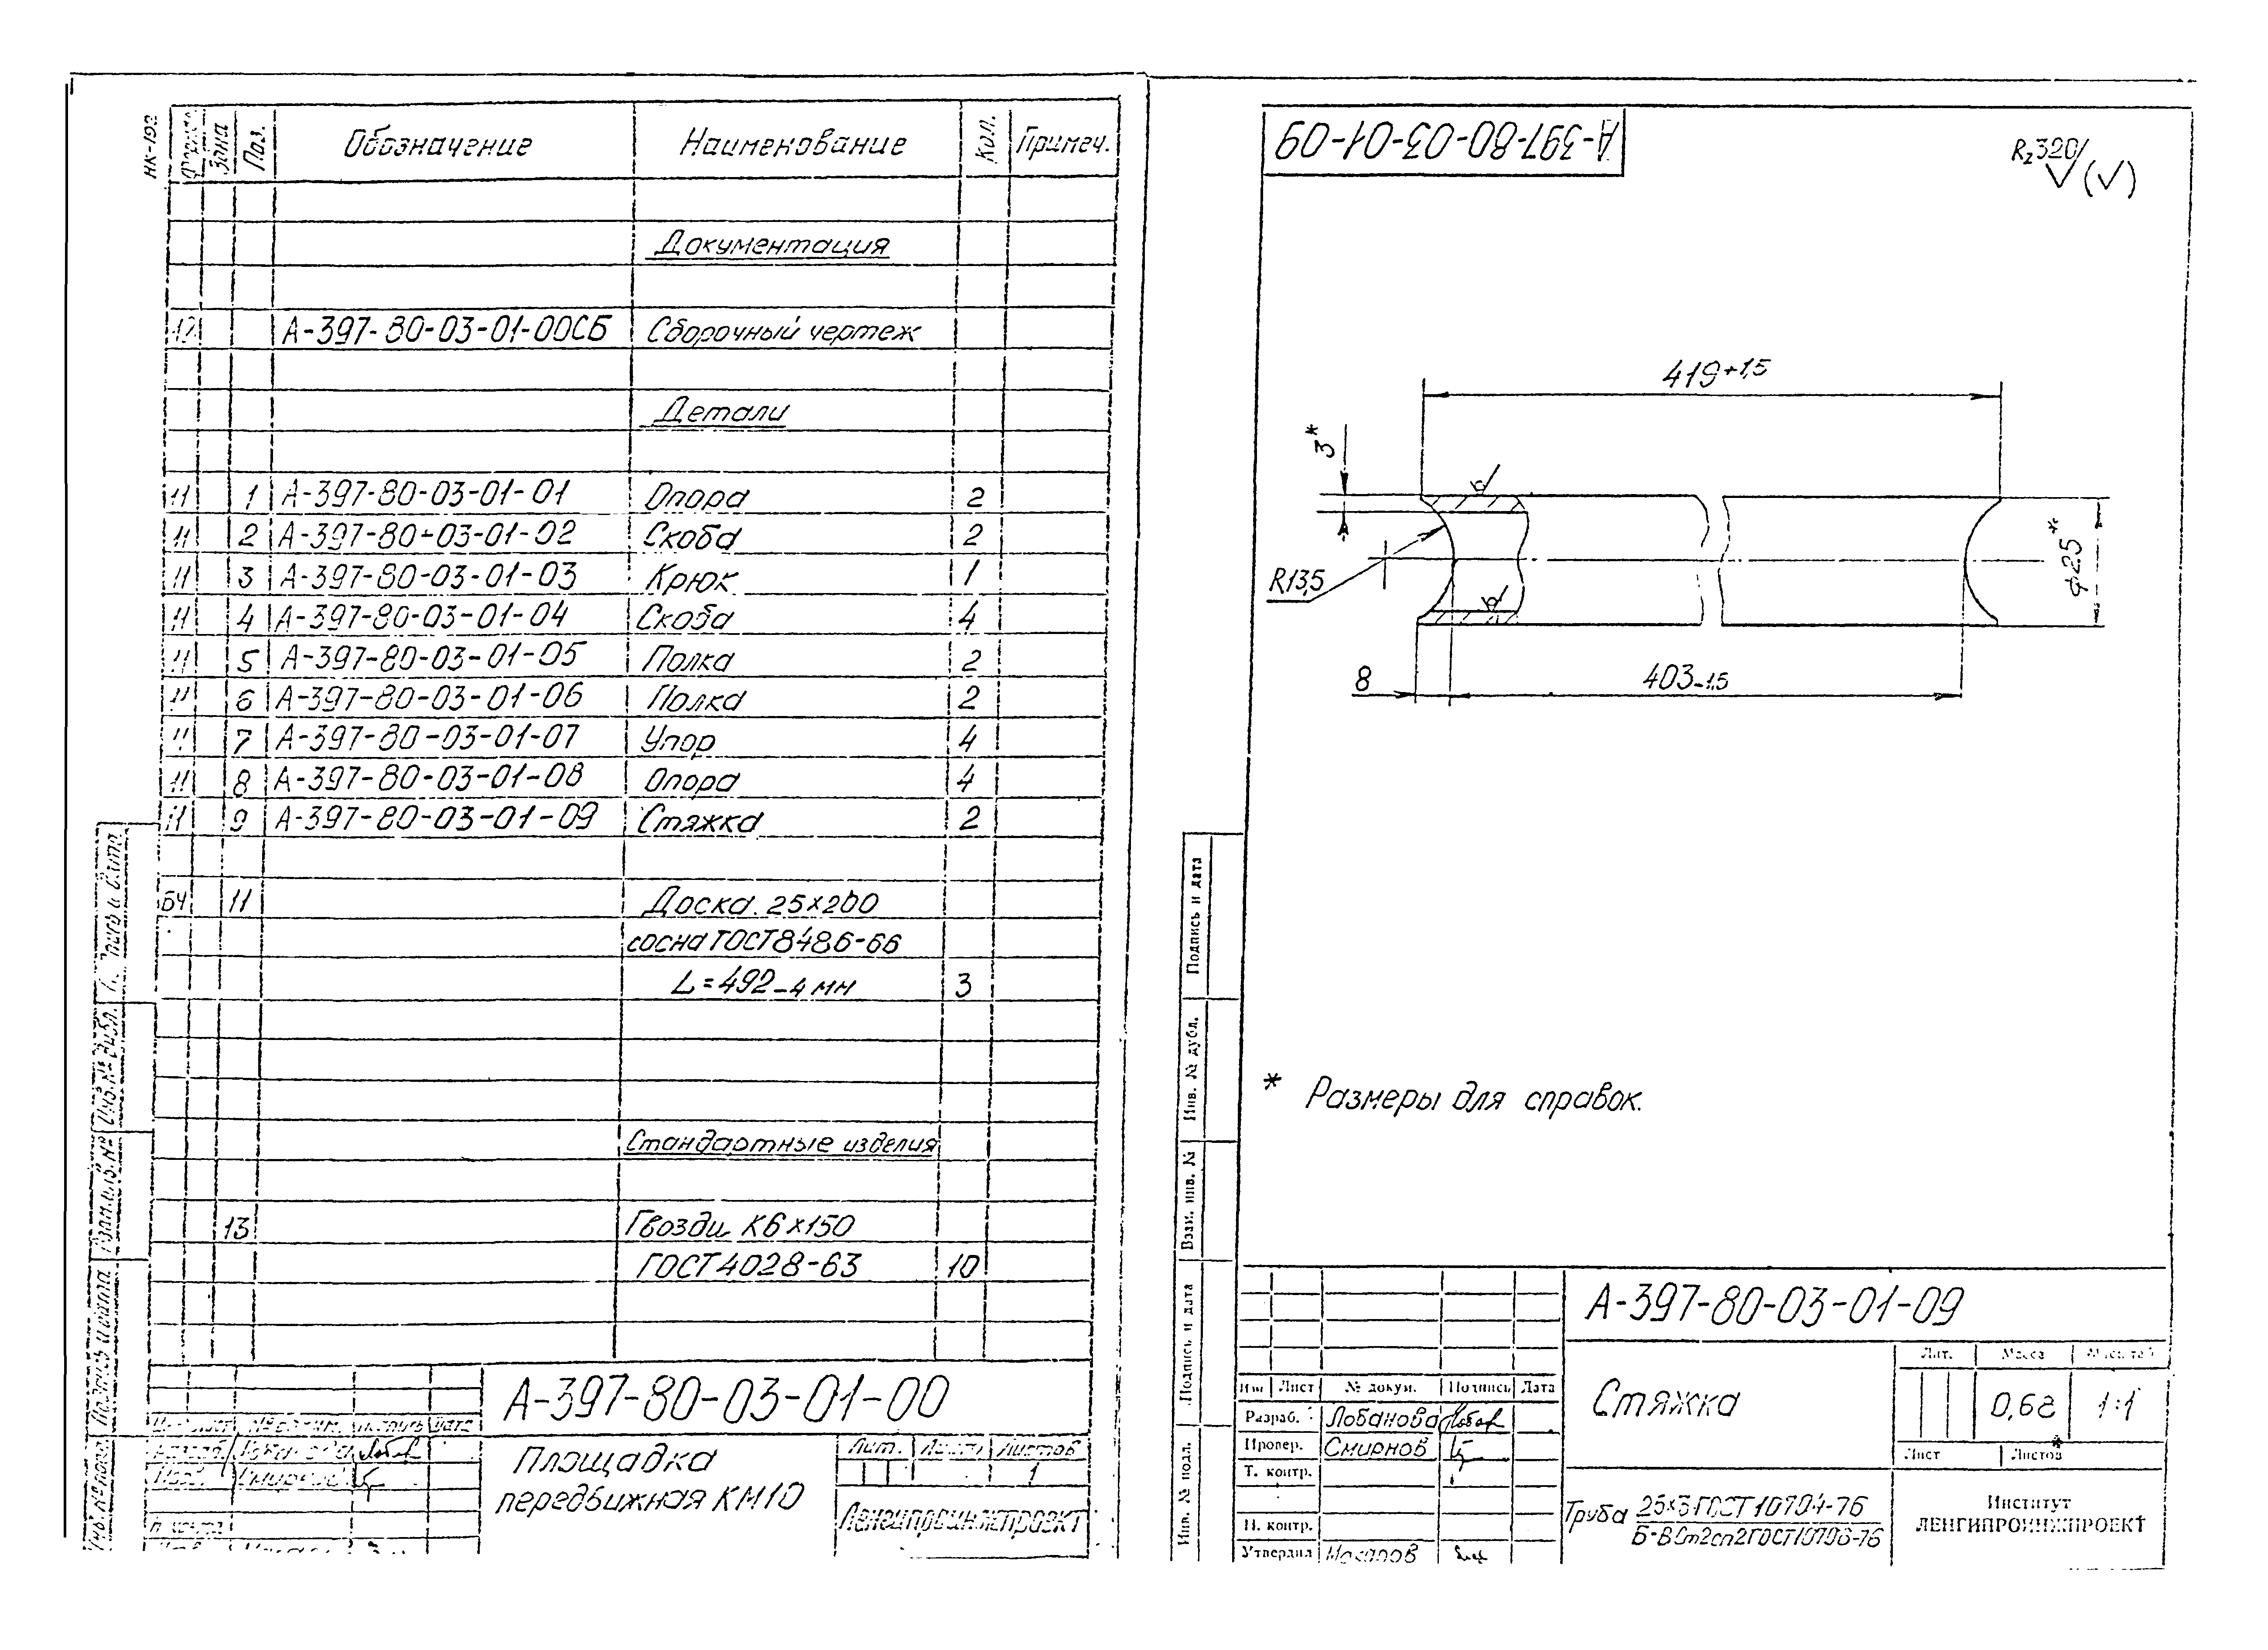 НК-192
Зона Поз. Обозначение Наименование Кол. Примеч.
Документация
12 А-397-80-03-01-00СБ Сборочный чертеж
Детали
11 1 А-397-80-03-01-01 Опора 2
11 2 А-397-80-03-01-02 Скоба 2
11 3 А-397-80-03-01-03 Крюк 1
11 4 А-397-80-03-01-04 Скоба 4
11 5 А-397-80-03-01-05 Полка 2
11 6 А-397-80-03-01-06 Полка 2
11 7 А-397-80-03-01-07 Упор 4
11 8 А-397-80-03-01-08 Опора 4
11 9 А-397-80-03-01-09 Стяжка 2
БЧ 11 Доска 25×200
сосна ГОСТ8486-66
L=492-4 мм 3
Стандартные изделия
13 Гвозди К6×150
ГОСТ4028-63 10
А-397-80-03-01-00
Площадка
передвижная КМ10
Лит. Лист Листов
1
Ленгипроинжпроект
А-397-80-03-01-09
Rz320 (√)
419+1,5
3*
R13,5
⌀25*
8
403-1,5
* Размеры для справок.
Подпись и дата
Инв. № дубл.
Взам. инв. №
Подпись и дата
Инв. № подл.
А-397-80-03-01-09
Изм Лист № докум. Подпись Дата
Разраб. Лобанова
Провер. Смирнов
Т. контр.
Н. контр.
Утвердил Макаров
Стяжка
Лит. Масса Масштаб
0,68 1:1
Лист Листов
Труба 25×3 ГОСТ10704-76
Б-ВСт2сп2ГОСТ10706-76
Институт
ЛЕНГИПРОИНЖПРОЕКТ